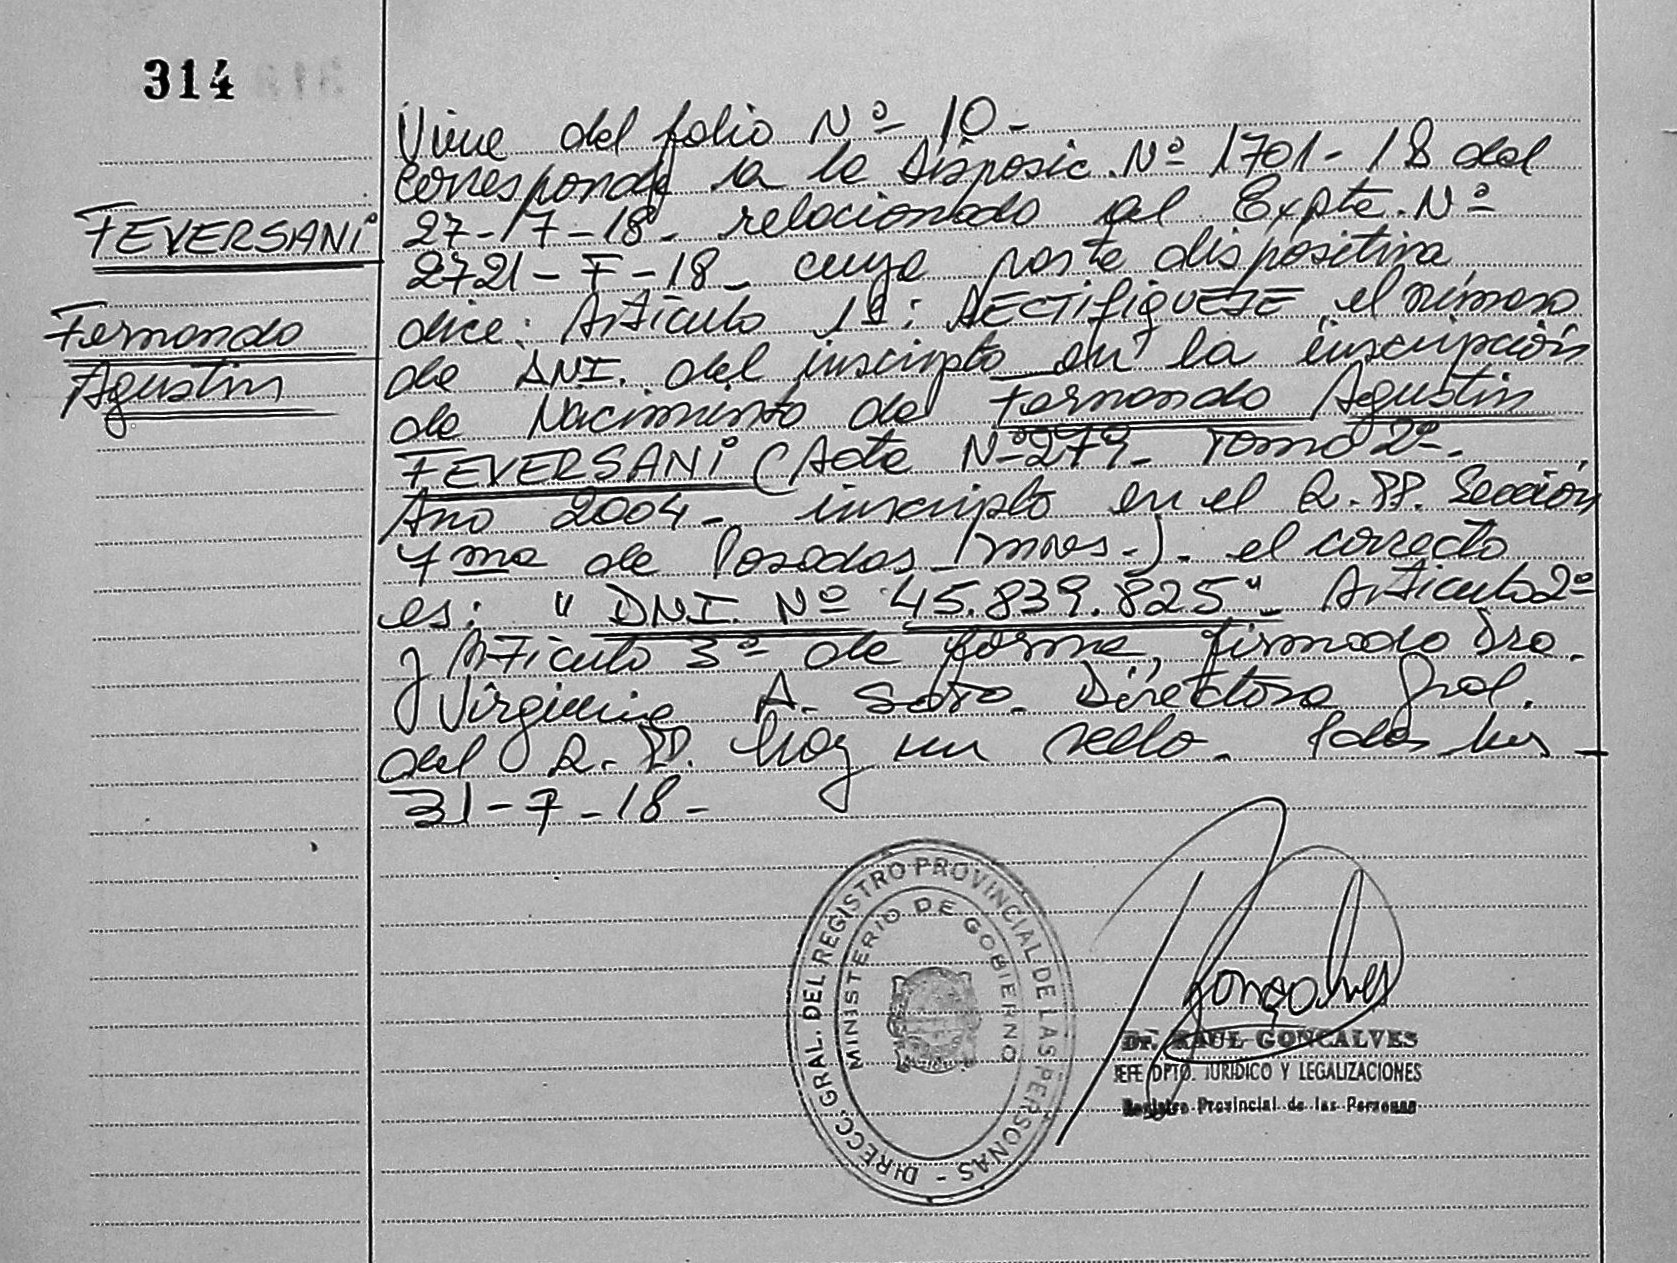 314
FEVERSANI
Fernando
Agustin
Viene del folio Nº 10 -
corresponde a la Disposic. Nº 1701 - 18 del
27 - 7 - 18 - relacionado al Expte. Nº
2721 - F - 18 - cuya parte dispositiva
dice: Artículo 1º: RECTIFIQUESE el número
de DNI. del inscripto en la inscripción
de Nacimiento de Fernando Agustin
FEVERSANI (Acta Nº 279 - Tomo 2º -
Año 2004 - inscripto en el R. PP. Sección
7ma de Posadas - Mnes -) - el correcto
es: " DNI. Nº 45.839.825" - Artículo 2º
y Artículo 3º de forma, firmado Dra.
Virginia A. Soto - Directora Gral.
del R. P. hay un sello -
31 - 7 - 18 -
DIRECC. GRAL. DEL REGISTRO PROVINCIAL DE LAS PERSONAS -
MINISTERIO DE GOBIERNO
Gonçalves
Dr. RAUL GONCALVES
JEFE DPTO. JURIDICO Y LEGALIZACIONES
Registro Provincial de las Personas